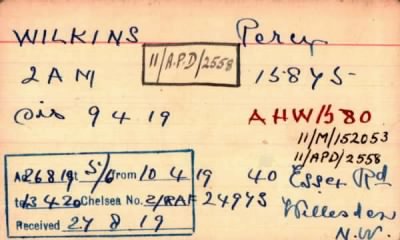 WILKINS Percy
11/A.P.D/2558
2AM 15875
dis 9 4 19 AHW/580
11/M/152053
11/APD/2558
Ad 26819 at 5/6 from 10 4 19 40 Essex Rd
to 13 4 20 Chelsea No. 2/RAF 24975 Willesden
Received 27 8 19 N.W.